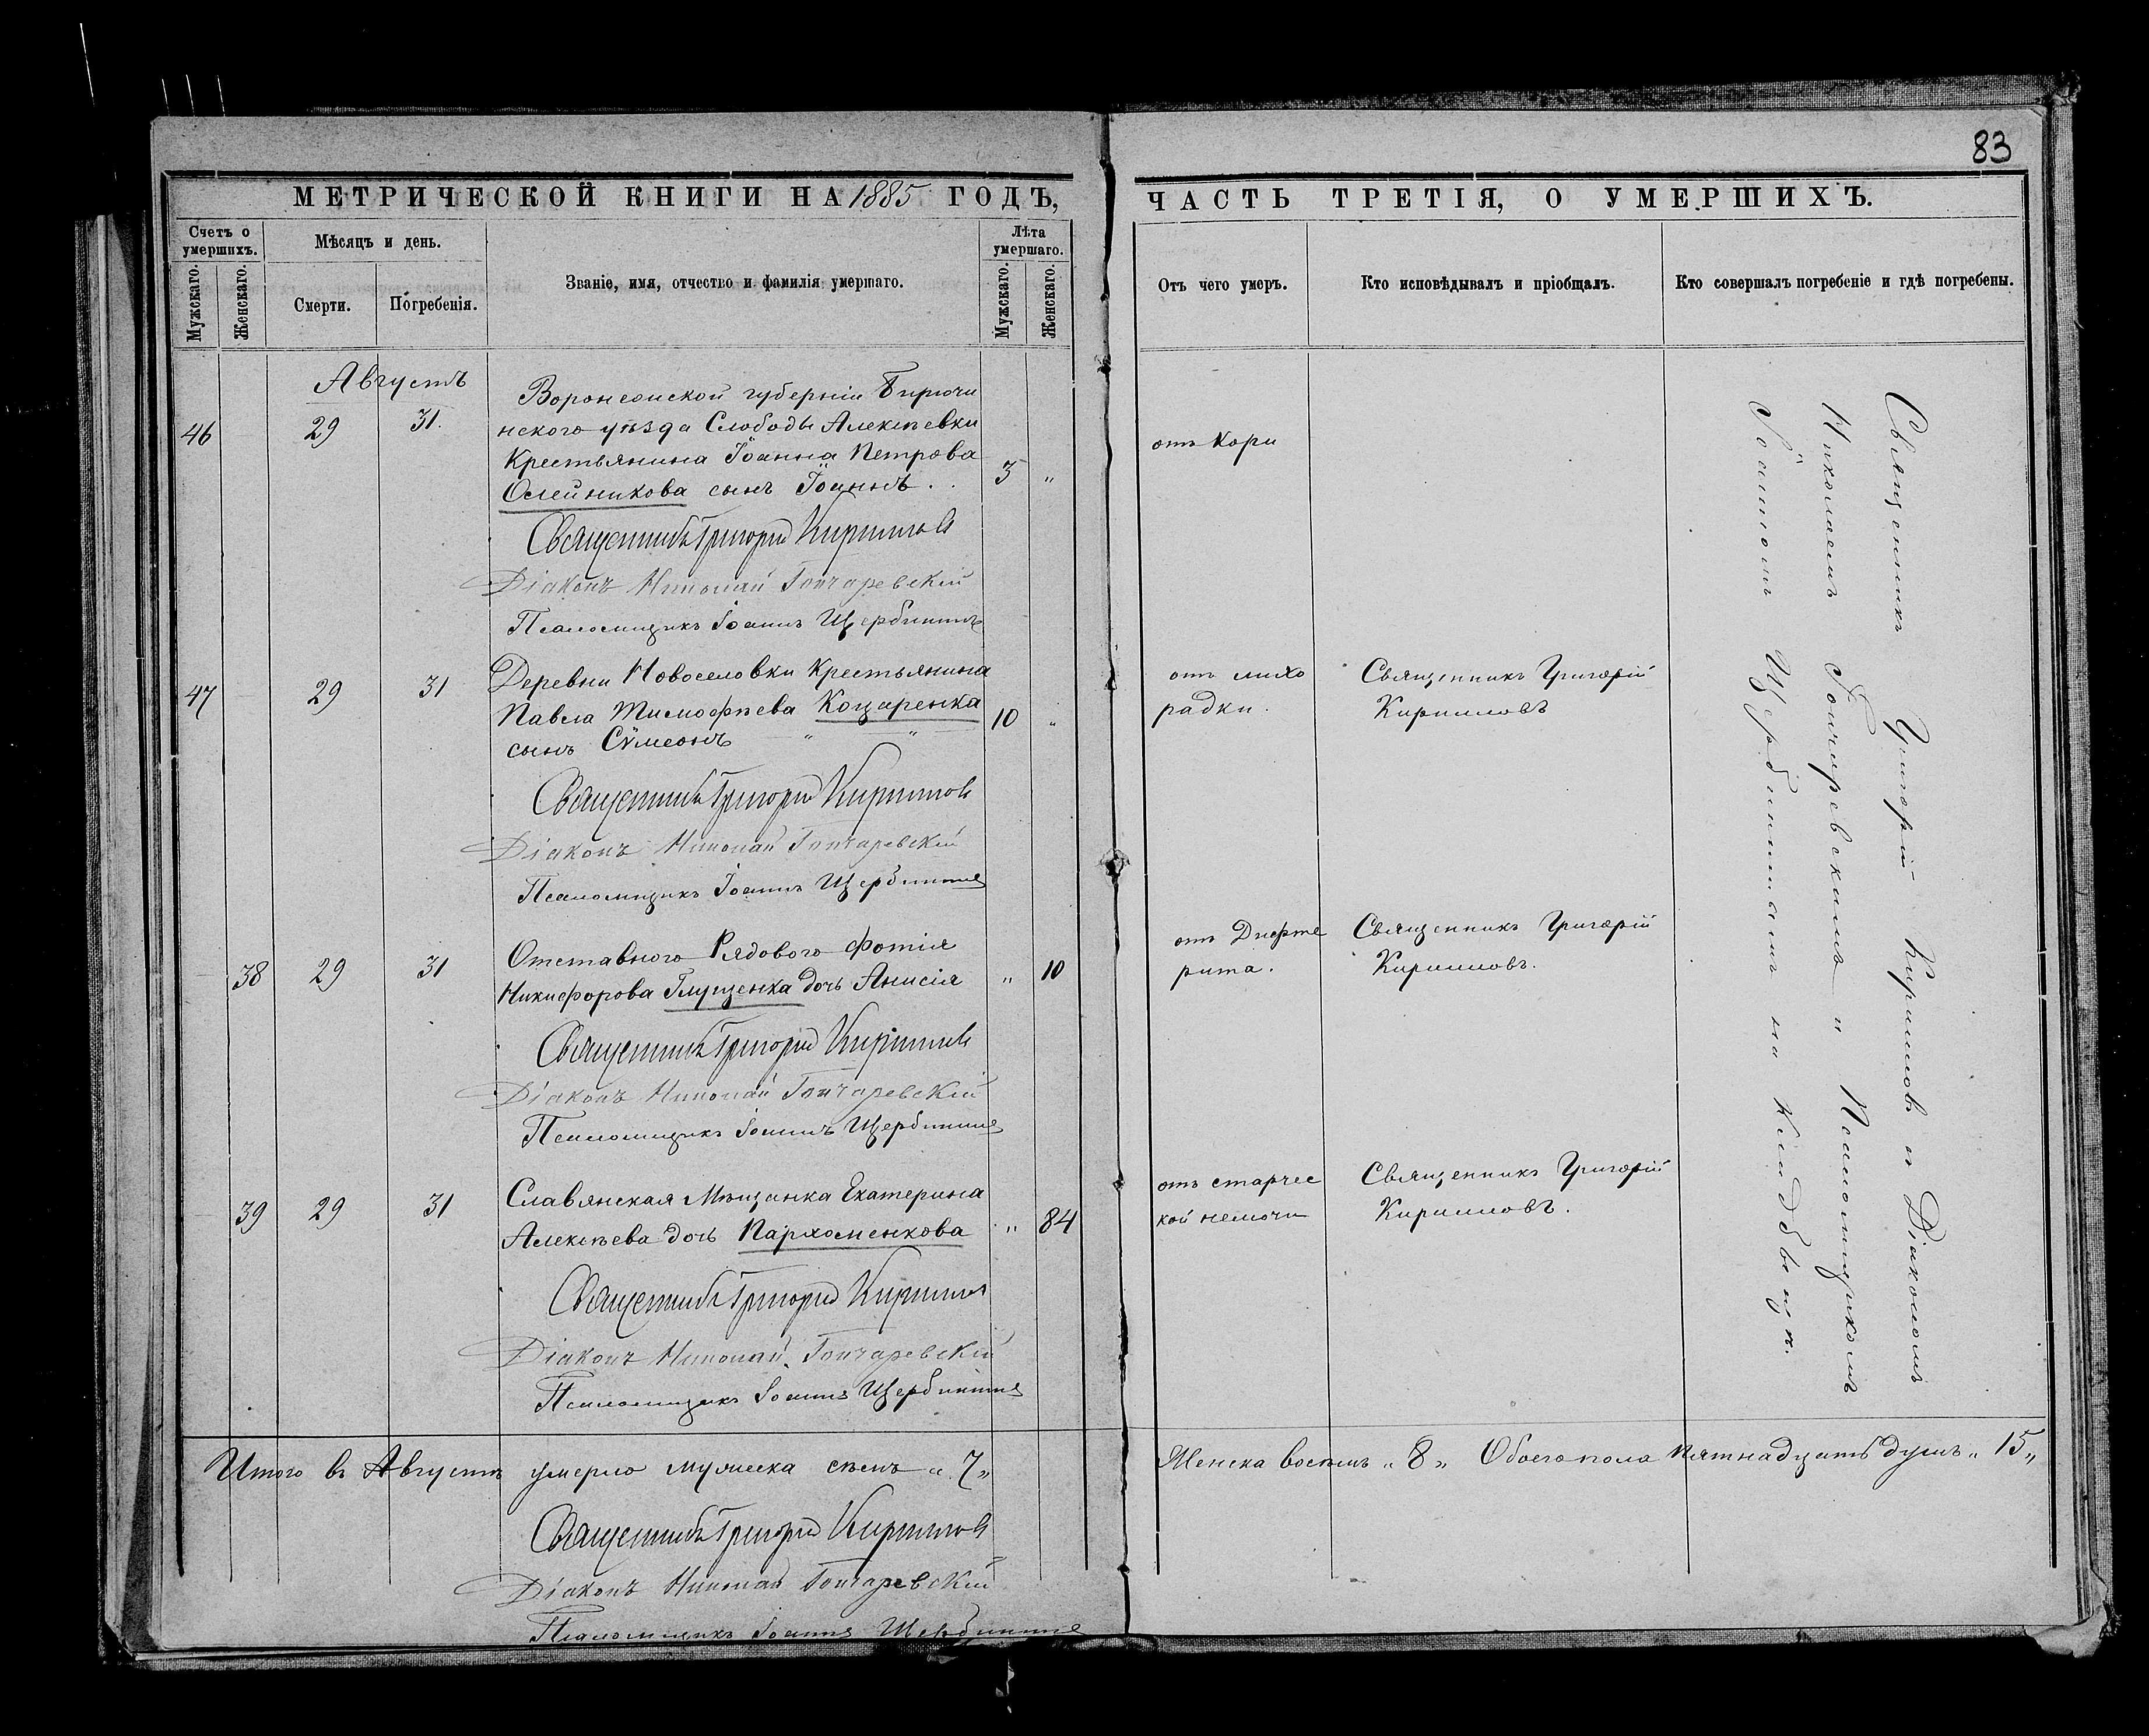 83
МЕТРИЧЕСКОЙ КНИГИ НА 1885 ГОДЪ,
Счетъ о умершихъ.
Мужскаго.
Женскаго.
Мѣсяцъ и день.
Смерти.
Погребенія.
Званіе, имя, отчество и фамилія умершаго.
Лѣта умершаго.
Мужскаго.
Женскаго.
ЧАСТЬ ТРЕТІЯ, О УМЕРШИХЪ.
Отъ чего умеръ.
Кто исповѣдывалъ и пріобщалъ.
Кто совершалъ погребеніе и гдѣ погребены.
Августъ
46 29 31.
Воронежской губерніи Бирючи
нского уѣзда Слободы Алексѣевки
Крестьянина Іоанна Петрова
Олейникова сынъ Іоаннъ . . 3 „
отъ Кори
Священникъ Григорій Кирилловъ
Діаконъ Николай Гончаревскій
Псаломщикъ Іоаннъ Щербининъ
47 29 31
Деревни Новоселовки Крестьянина
Павла Тимофѣева Коцаренка 10 „
сынъ Сѵмеонъ „ „
отъ лихо
радки.
Священникъ Григорій
Кирилловъ
Священникъ Григорій Кирилловъ
Діаконъ Николай Гончаревскій
Псаломщикъ Іоаннъ Щербининъ
38 29 31
Отставного Рядового Фотія
Никифорова Глущенка дочь Анисія „ 10
отъ Дифте
рита.
Священникъ Григорій
Кирилловъ.
Священникъ Григорій Кирилловъ
Діаконъ Николай Гончаревскій
Псаломщикъ Іоаннъ Щербининъ
39 29 31
Славянская Мѣщанка Екатерина
Алексѣева дочь Пархоменкова „ 84
отъ старчес
кой немочи
Священникъ Григорій
Кирилловъ.
Священникъ Григорій Кирилловъ
Діаконъ Николай Гончаревскій
Псаломщикъ Іоаннъ Щербининъ
Священникъ Григорій Кирилловъ съ Діакономъ
Николаемъ Гончаревскимъ и Псаломщикомъ
Іоанномъ Щербининымъ на кладбищѣ.
Итого въ Августѣ умерло мужеска семь „ 7 „
Женска восемь „ 8 „ Обоего пола пятнадцать душъ „ 15 „
Священникъ Григорій Кирилловъ
Діаконъ Николай Гончаревскій
Псаломщикъ Іоаннъ Щербининъ